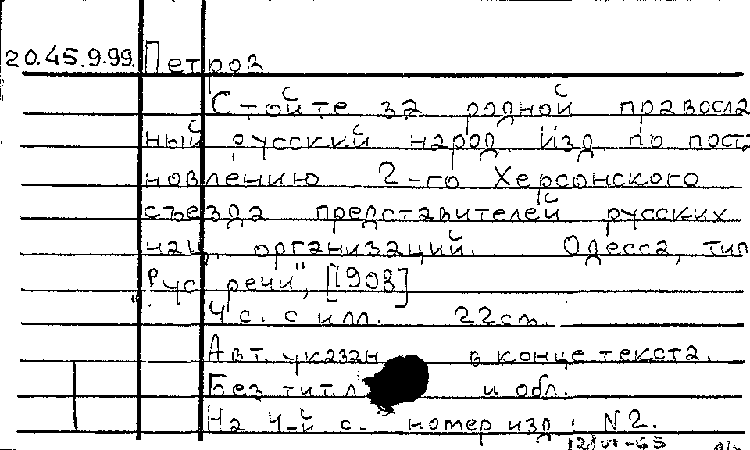 20.45.9.99. Петров
Стойте за родной правосла
ный русский народ. Изд. по пост
новлению 2-го Херсонского
съезда представителей русских
нац. организаций. Одесса, тип
"Рус. речи", [1908]
4 с. с илл. 22см.
Авт. указан в конце текста.
Без тит. л и обл.
На 4-й с. номер изд.: N2.
12/VI-65